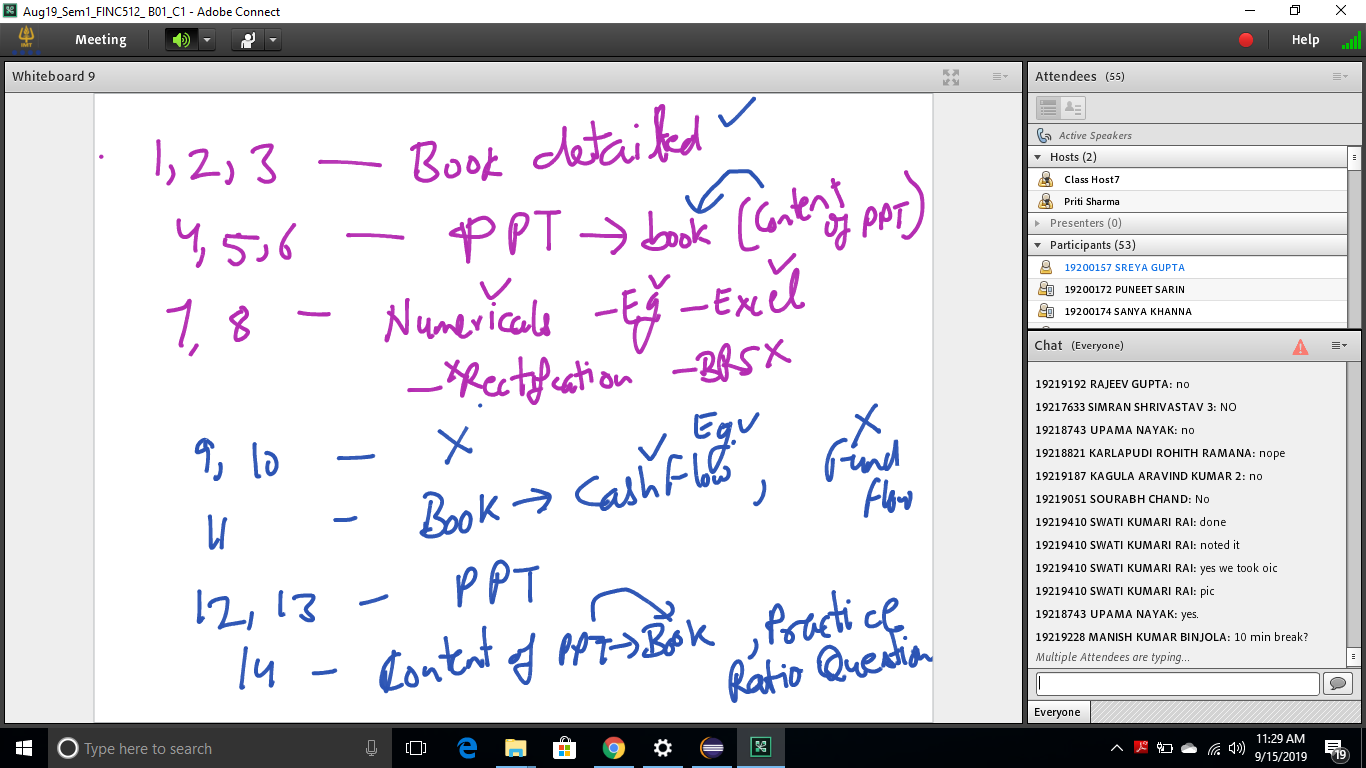 Aug19_Sem1_FINC512_ B01_C1 - Adobe Connect
Meeting
Help
Whiteboard 9
1, 2, 3 — Book detailed ✓
4, 5, 6 — PPT → book (Content of PPT)
7, 8 — Numericals ✓ - Eg ✓ - Excel ✓
— x Rectification - BRS X
9, 10 — X
11 — Book → Cash Flow ✓ Eg. ✓, Fund Flow X
12, 13 — PPT
14 — Content of PPT → Book, Practice
Ratio Question
Attendees (55)
Active Speakers
Hosts (2)
Class Host7
Priti Sharma
Presenters (0)
Participants (53)
19200157 SREYA GUPTA
19200172 PUNEET SARIN
19200174 SANYA KHANNA
Chat (Everyone)
19219192 RAJEEV GUPTA: no
19217633 SIMRAN SHRIVASTAV 3: NO
19218743 UPAMA NAYAK: no
19218821 KARLAPUDI ROHITH RAMANA: nope
19219187 KAGULA ARAVIND KUMAR 2: no
19219051 SOURABH CHAND: No
19219410 SWATI KUMARI RAI: done
19219410 SWATI KUMARI RAI: noted it
19219410 SWATI KUMARI RAI: yes we took oic
19219410 SWATI KUMARI RAI: pic
19218743 UPAMA NAYAK: yes.
19219228 MANISH KUMAR BINJOLA: 10 min break?
Multiple Attendees are typing...
Everyone
Type here to search
11:29 AM
9/15/2019
19